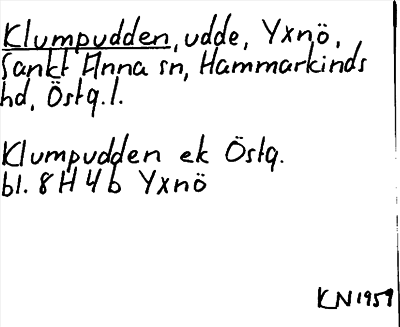 Klumpudden, udde, Yxnö,
Sankt Anna sn, Hammarkinds
hd, Östg.l.
Klumpudden ek Östg.
bl. 8 H 4 b Yxnö
KN 1959